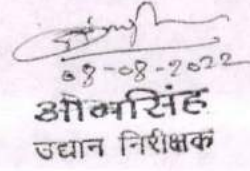 08-08-2022
ओमसिंह
उद्यान निरीक्षक